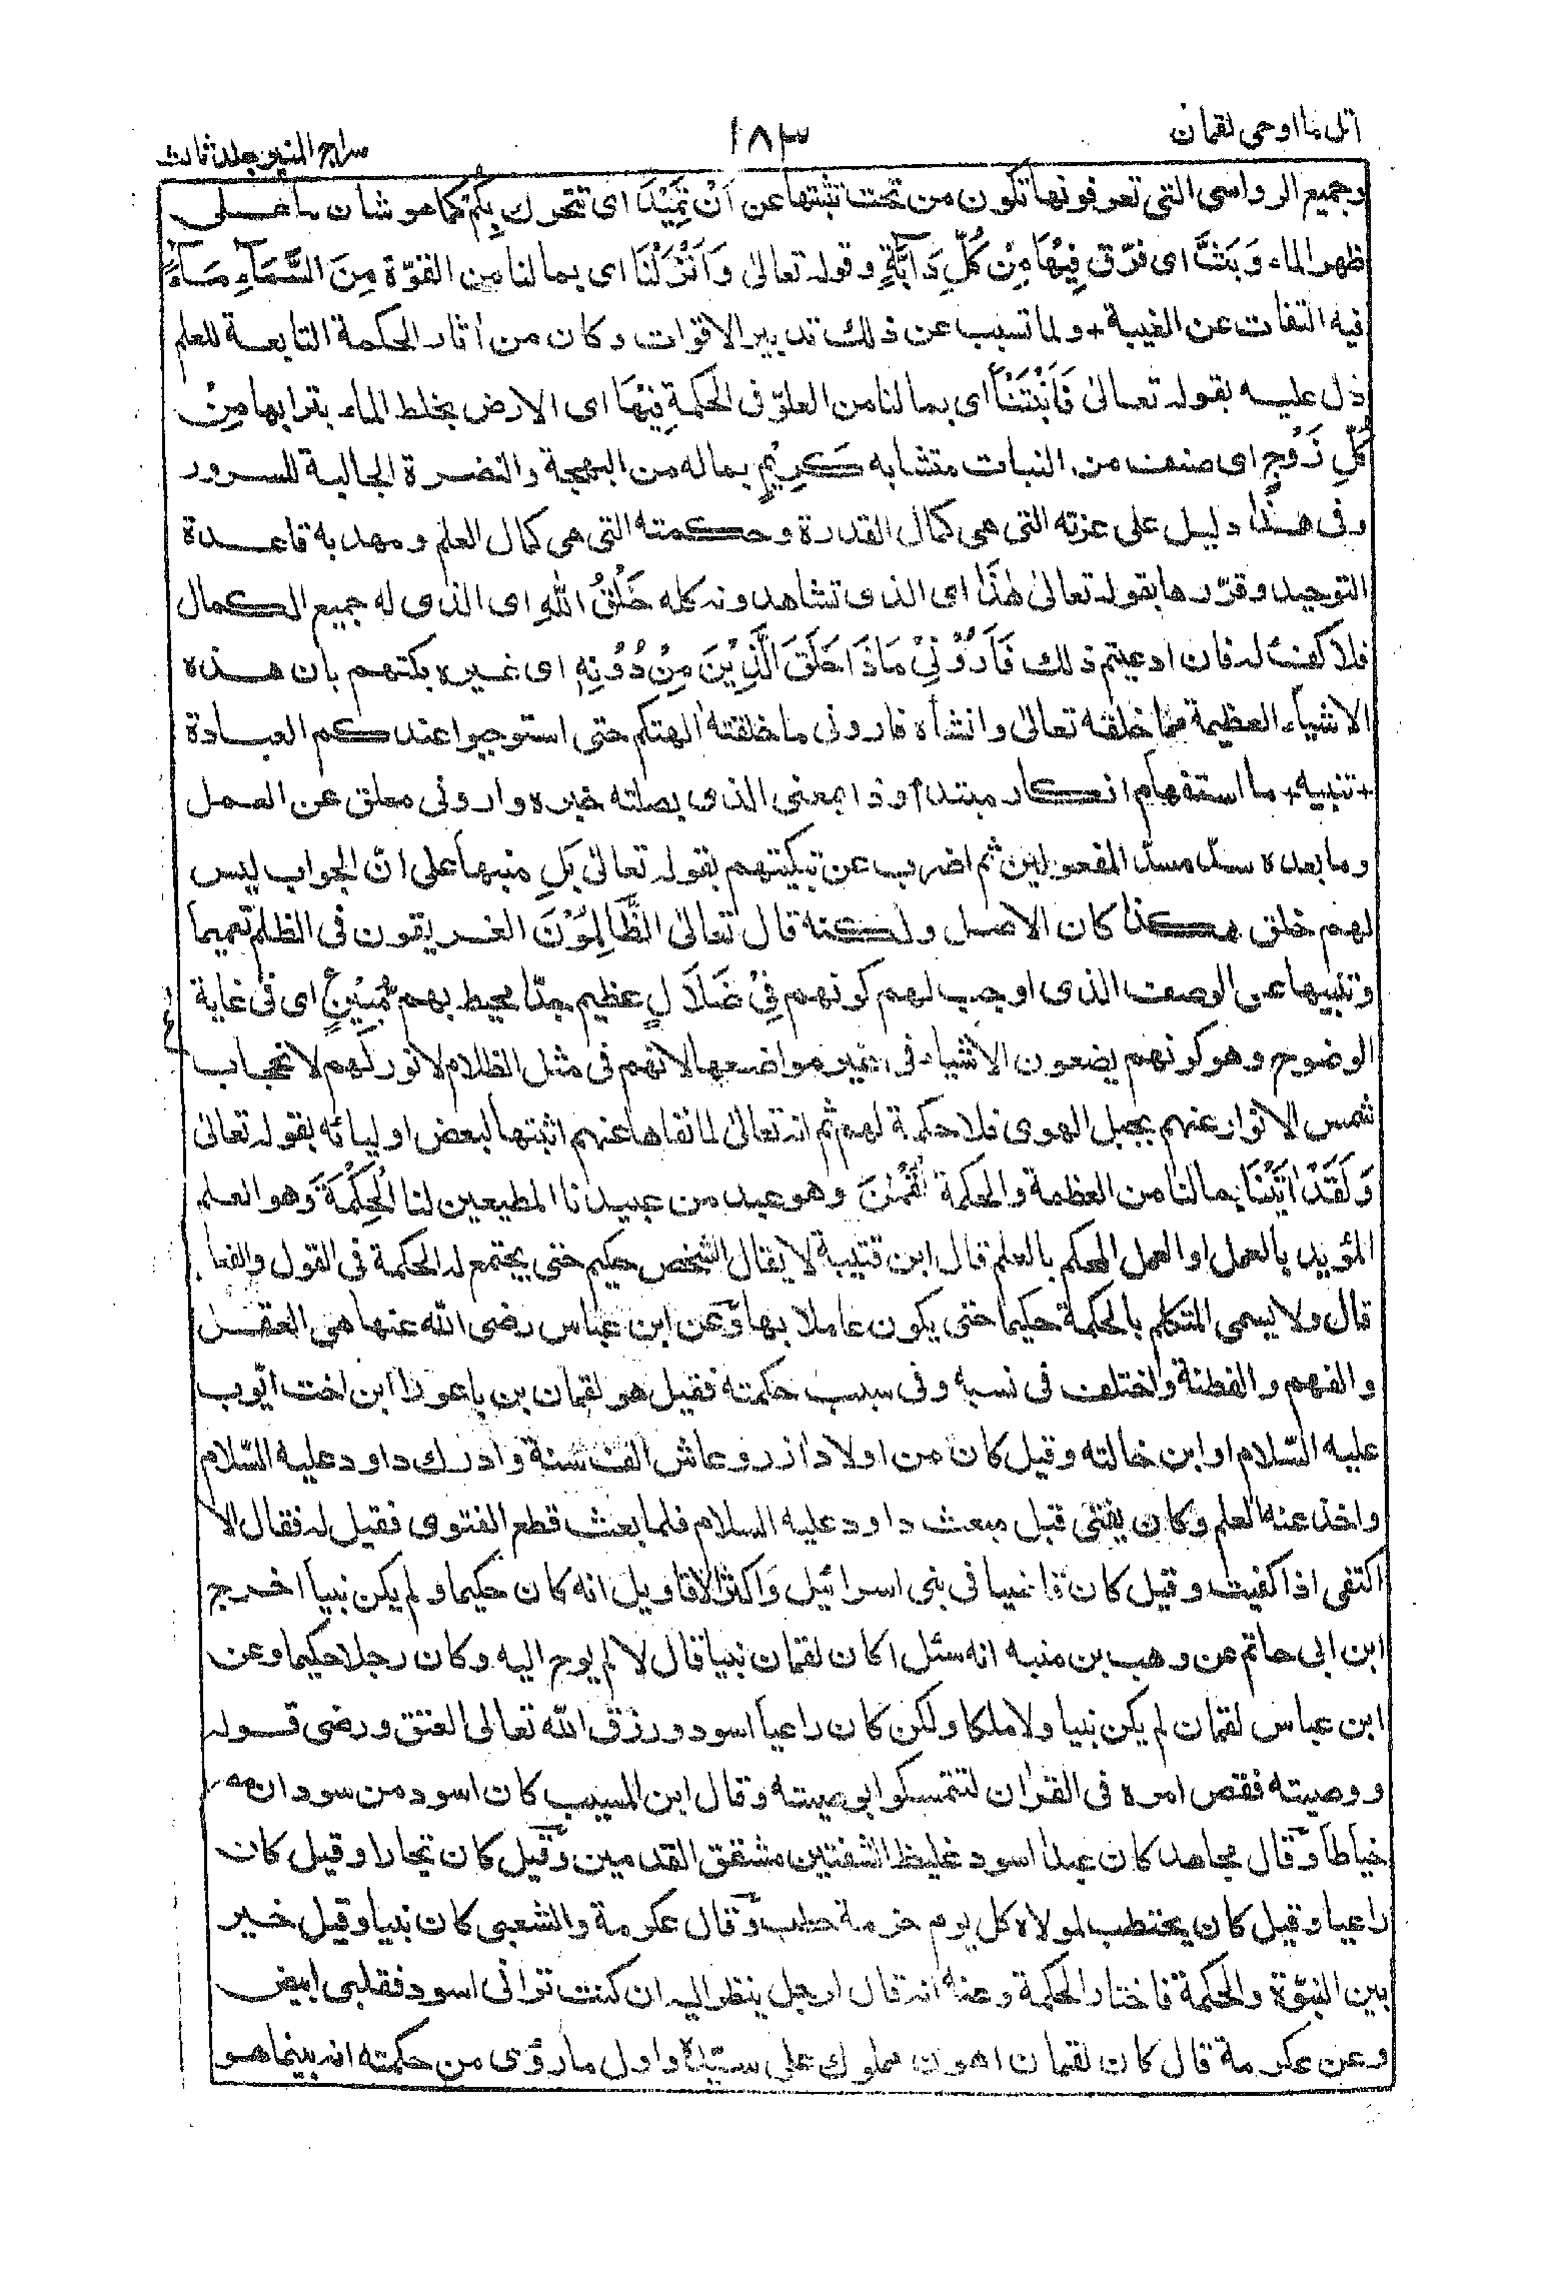 اتل ما اوحی لقمان
١٨٣
سراج المنیر جلد ثالث
وجميع الرواسى التى تعرفونها تكون من تحت تثبتها عن اَنْ تَمِيْدَ اى تتحرك بِكُمْ كما هو شان ما على
ظهر الماء وَبَثَّ اى فرّق فِيْهَا مِنْ كُلِّ دَآبَّةٍ وقوله تعالىٰ وَاَنْزَلْنَا اى بما لنا من القوّة مِنَ السَّمَآءِ مَآءً
فيه التفات عن الغيبة + ولما تسبب عن ذلك تدبير الاقوات وكان من أثار الحكمة التابعة للعلم
دل عليه بقوله تعالىٰ فَاَنْبَتْنَا اى بما لنا من العلوّ فى الحكمة فِيْهَا اى الارض بخلط الماء بترابها مِنْ
كُلِّ زَوْجٍ اى صنف من النبات متشابه كَرِيْمٍ بما له من البهجة والنضرة الجالبة للسرور
وفى هذا دليل على عزته التى هى كمال القدرة وحكمته التى هى كمال العلم ومهد به قاعدة
التوحيد وقرّرها بقوله تعالىٰ هٰذَا اى الذى تشاهدونه كله خَلْقُ اللهِ اى الذى له جميع الكمال
فلا كفئ له فان ادعيتم ذلك فَاَرُوْنِيْ مَاذَا خَلَقَ الَّذِيْنَ مِنْ دُوْنِهٖ اى غيره بكتهم بان هذه
الاشياء العظيمة مما خلقه تعالىٰ وانشأه فارونى ما خلقته اٰلهتكم حتى استوجبوا عندكم العبادة
+ تنبيه + ما استفهام انكار مبتدأ وذا بمعنى الذى بصلته خبره وارونى معلق عن العمل
وما بعده سدّ مسدّ المفعولين ثم اضرب عن تبكيتهم بقوله تعالىٰ بَلِ منبها على انّ الجواب ليس
لهم خلق هكذا كان الاصل ولكنه قال تعالىٰ الظَّالِمُوْنَ الغريقون فى الظلم تعميما
وتنبيها عن الوصف الذى اوجب لهم كونهم فِيْ ضَلَالٍ عظيم جدّا محيط بهم مُّبِيْنٍ اى فى غاية
الوضوح وهو كونهم يضعون الاشياء فى غير مواضعها لانهم فى مثل الظلام لا نور لهم لانحجاب
شمس الانوار عنهم بجبل الهوى فلا حكمة لهم ثم انه تعالىٰ لما نفاها عنهم اثبتها لبعض اوليائه بقوله تعالىٰ
وَلَقَدْ اٰتَيْنَا بما لنا من العظمة والحكمة لُقْمٰنَ وهو عبد من عبيدنا المطيعين لنا الْحِكْمَةَ وهو العلم
المؤيد بالعمل او العمل المحكم بالعلم قال ابن قتيبة لا يقال الشخص حكيم حتى يجتمع له الحكمة فى القول والفعل
قال ولا يسمى المتكلم بالحكمة حكيما حتى يكون عاملا بها وعن ابن عباس رضى الله عنهما هى العقل
والفهم والفطنة واختلف فى نسبه وفى سبب حكمته فقيل هو لقمان بن باعورا ابن اخت ايّوب
عليه السّلام او ابن خالته وقيل كان من اولاد اٰزر وعاش الف سنة وادرك داود عليه السّلام
واخذ عنه العلم وكان يفتى قبل مبعث داود عليه السلام فلما بعث قطع الفتوى فقيل له فقال الا
اكتفى اذا كفيت وقيل كان قاضيا فى بنى اسرائيل واكثر الاقاويل انه كان حكيما ولم يكن نبيا اخرج
ابن ابى حاتم عن وهب بن منبه انه سئل اكان لقمان نبيا قال لا لم يوح اليه وكان رجلا حكيما وعن
ابن عباس لقمان لم يكن نبيا ولا ملكا ولكن كان راعيا اسود ورزق الله تعالى العتق ورضى قوله
ووصيته فقص امره فى القراٰن لتتمسكوا بوصيته وقال ابن المسيب كان اسود من سودان
خياطا وقال مجاهد كان عبدا اسود غليظ الشفتين مشقق القدمين وقيل كان نجارا وقيل كان
راعيا وقيل كان يحتطب لمولاه كل يوم حزمة حطب وقال عكرمة والشعبى كان نبيا وقيل خير
بين النبوّة والحكمة فاختار الحكمة وعنه انه قال لرجل ينظر اليه ان كنت ترانى اسود فقلبى ابيض
وعن عكرمة قال كان لقمان اهون مملوك على سيّده واول ما رؤى من حكمته انه بينما هو